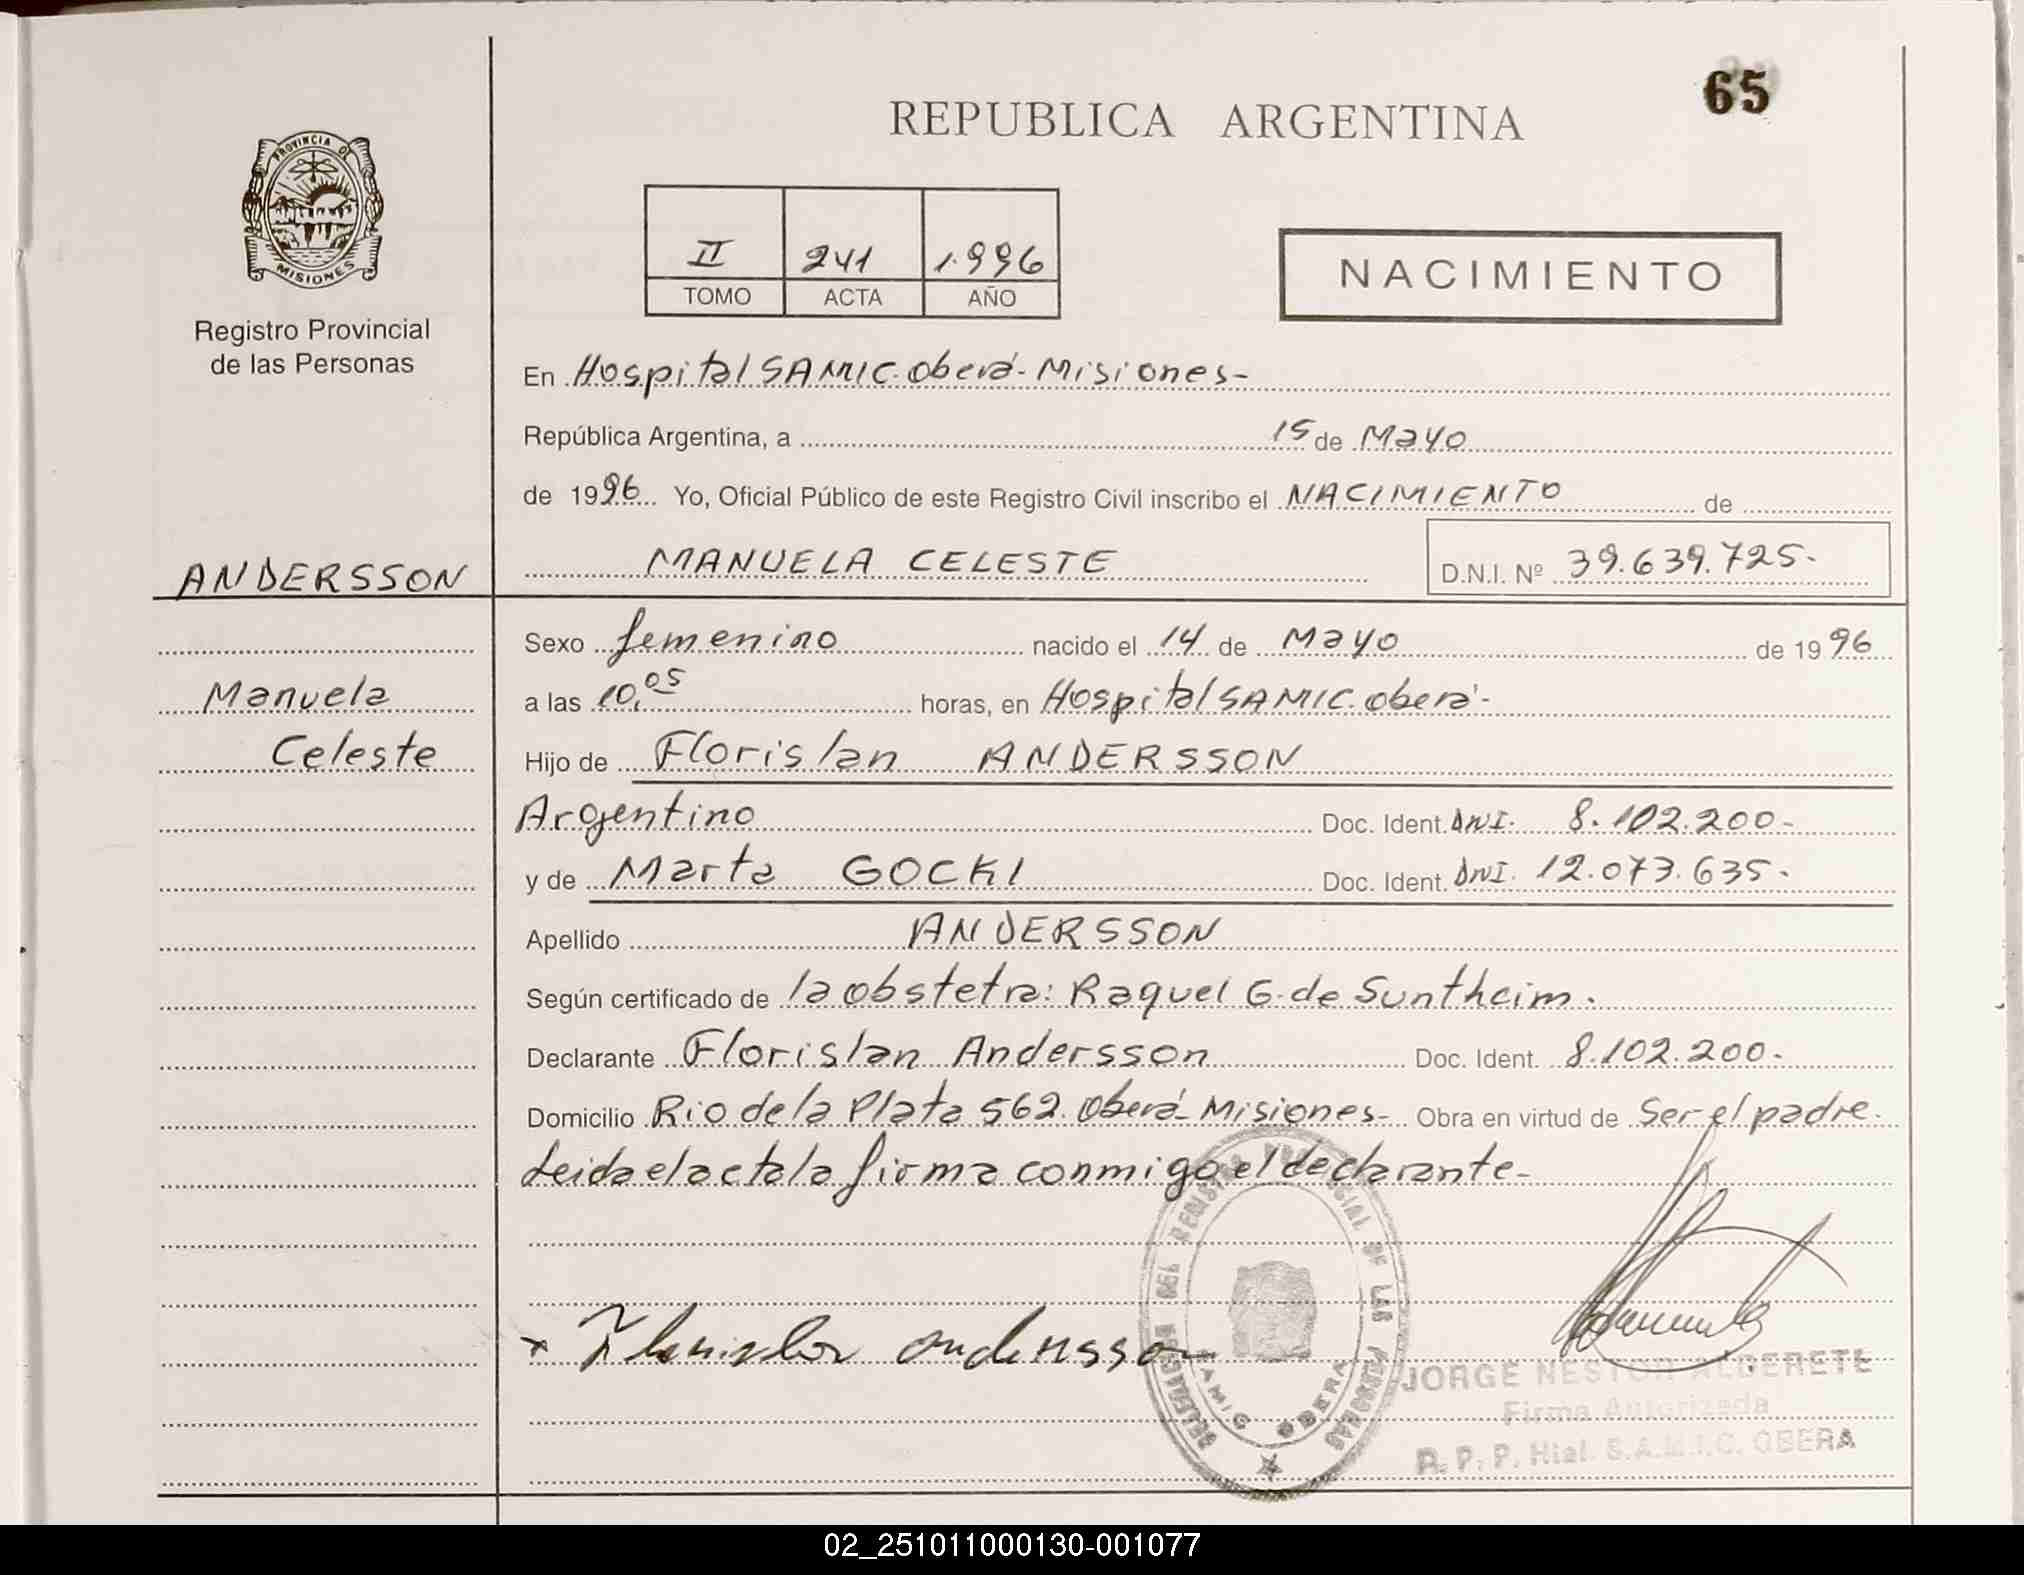 65
REPUBLICA ARGENTINA
PROVINCIA DE
MISIONES
Registro Provincial
de las Personas
II 241 1.996
TOMO ACTA AÑO
NACIMIENTO
En Hospital SAMIC. Oberá - Misiones -
República Argentina, a 15 de Mayo
de 1996 Yo, Oficial Público de este Registro Civil inscribo el NACIMIENTO de
MANUELA CELESTE D.N.I. Nº 39.639.725.
ANDERSSON
Manuela
Celeste
Sexo femenino nacido el 14 de Mayo de 1996
a las 10,05 horas, en Hospital SAMIC. Oberá -
Hijo de Florislan ANDERSSON
Argentino Doc. Ident. DNI. 8.102.200-
y de Marta GOCKI Doc. Ident. DNI. 12.073.635.
Apellido ANDERSSON
Según certificado de la obstetra: Raquel G. de Suntheim.
Declarante Florislan Andersson Doc. Ident. 8.102.200.
Domicilio Rio de la Plata 562. Oberá - Misiones - Obra en virtud de Ser el padre.
Leida el acta la firma conmigo el declarante -
x Florislan andersson
DEL REGISTRO PROVINCIAL DE LAS PERSONAS
SAMIC OBERA
JORGE NESTOR ALDERETE
Firma Autorizada
R. P. P. Htal. S.A.M.I.C. OBERA
02_251011000130-001077